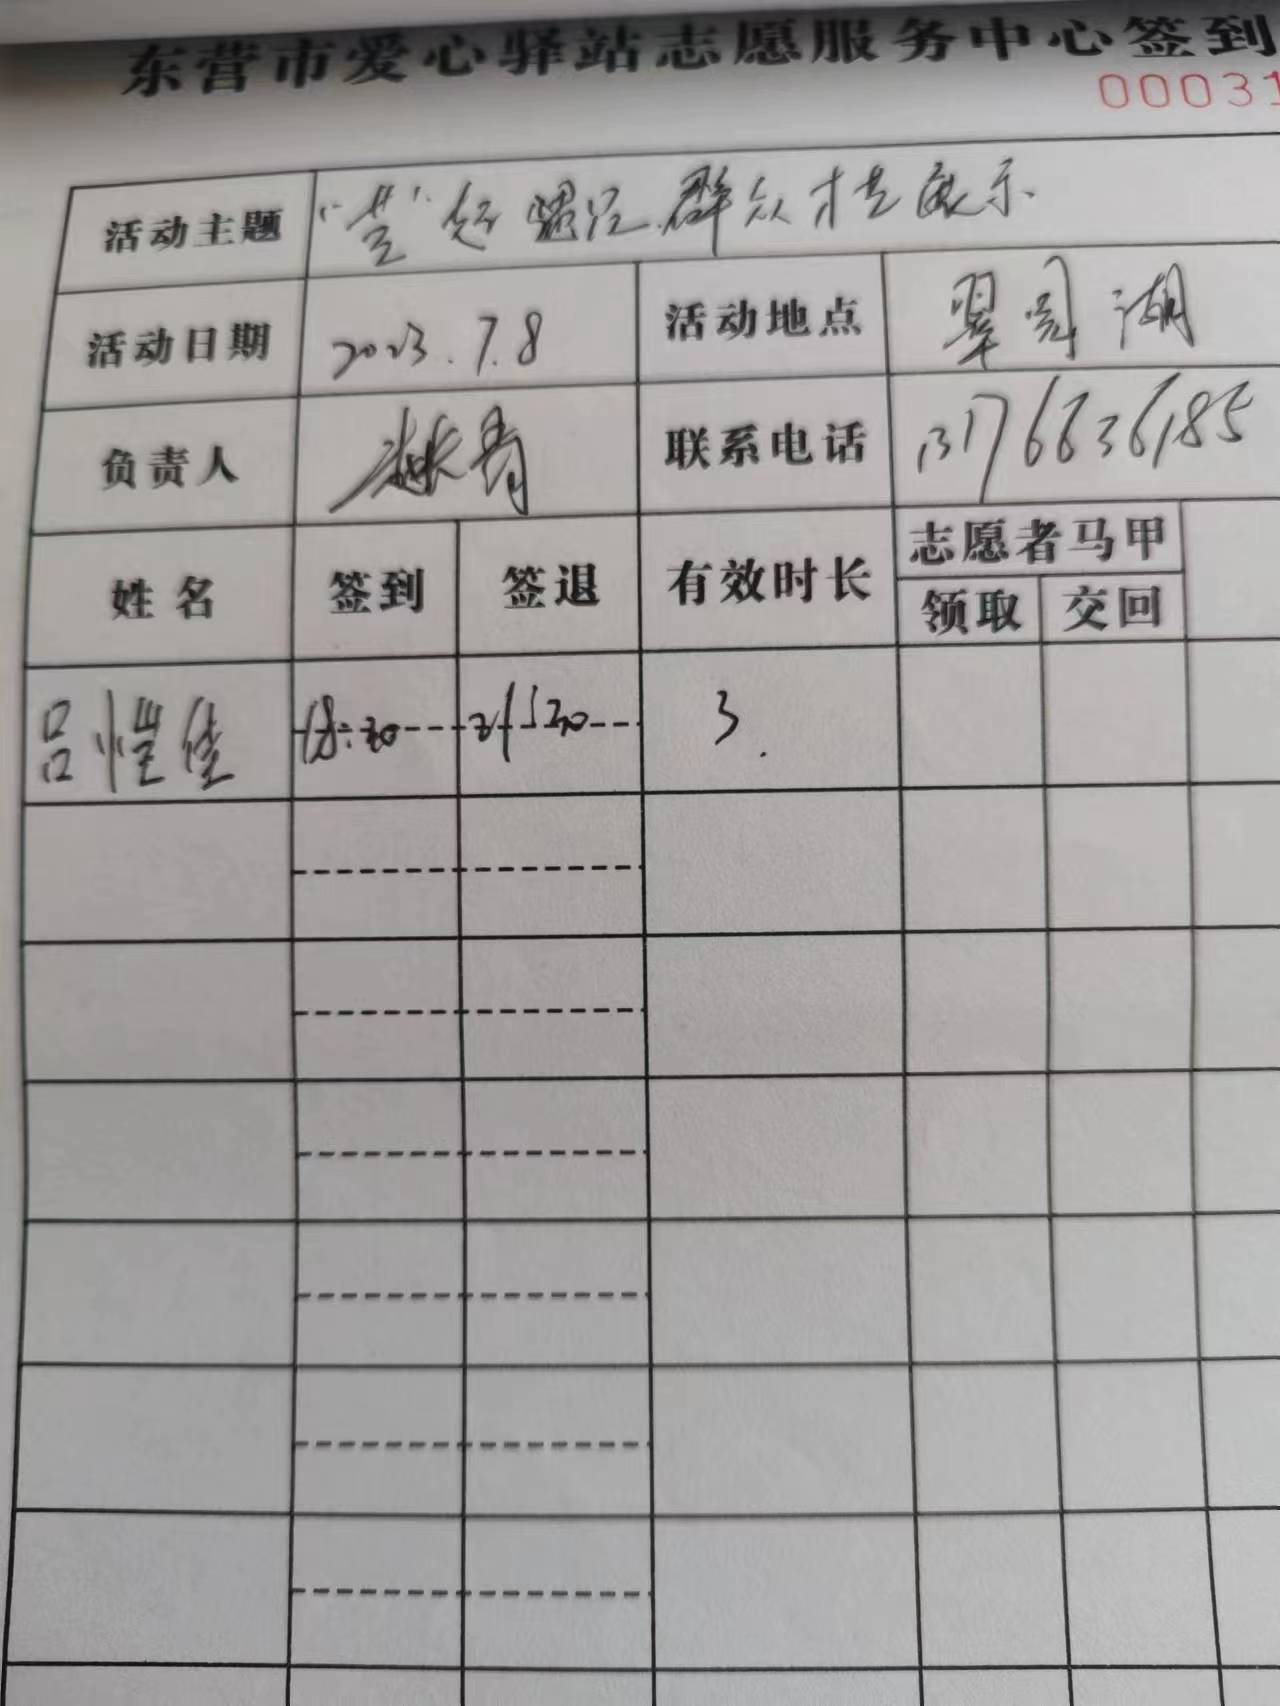 东营市爱心驿站志愿服务中心签到
00031
活动主题 群众才艺展示
活动日期 2023.7.8 活动地点 翠园湖
负责人 联系电话 13176636185
姓名 签到 签退 有效时长 志愿者马甲
领取 交回
吕恺佳 18:30 21:30 3.